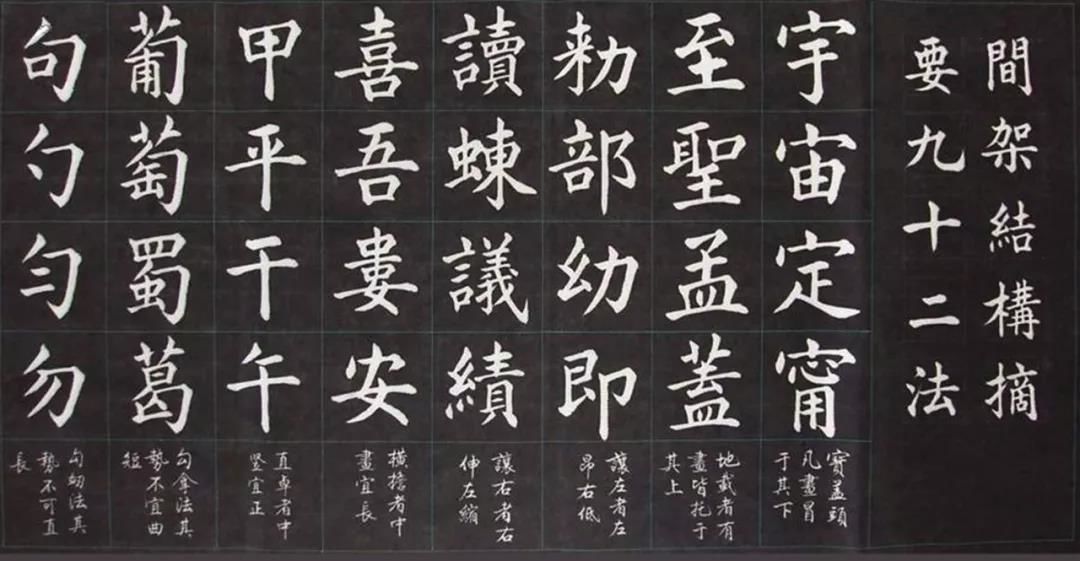 間架結構摘
要九十二法
宇宙定甯
寶盖頭
凡畫冒
于其下
至聖孟蓋
地載者有
畫皆托于
其上
勑部幼即
讓左者左
昂右低
讀蝀議績
讓右者右
伸左縮
喜吾婁安
橫擔者中
畫宜長
甲平干午
直卓者中
竪宜正
葡萄蜀葛
勾拿法其
勢不宜曲
短
句勺勻勿
勾法其
勢不可直
長